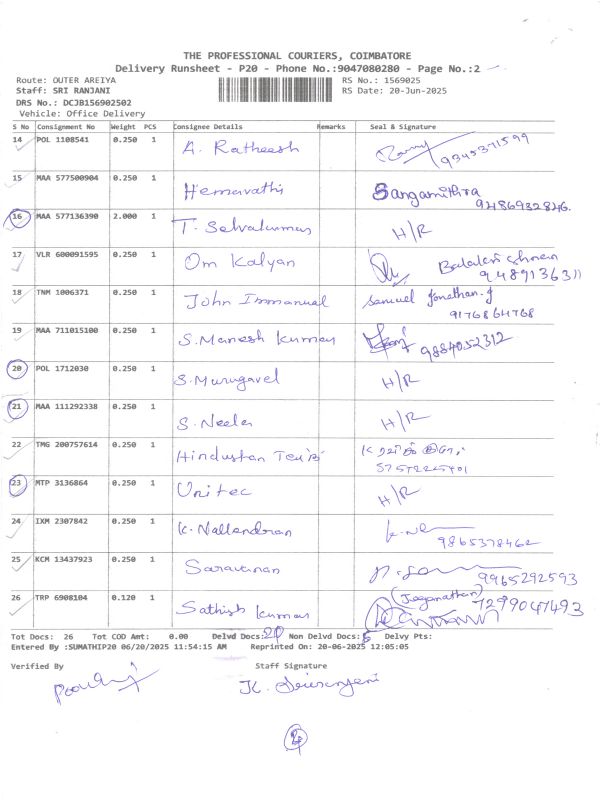 THE PROFESSIONAL COURIERS, COIMBATORE
Delivery Runsheet - P20 - Phone No.:9047080280 - Page No.:2
Route: OUTER AREIYA RS No.: 1569025
Staff: SRI RANJANI RS Date: 20-Jun-2025
DRS No.: DCJB156902502
Vehicle: Office Delivery
S No Consignment No Weight PCS Consignee Details Remarks Seal & Signature
14 POL 1108541 0.250 1 A. Ratheesh 9345371599
15 MAA 577500904 0.250 1 Hemavathi Sangamithra
9486932846.
16 MAA 577136390 2.000 1 T. Selvakumar H/R
17 VLR 600091595 0.250 1 Om Kalyan
9489136311
18 TNM 1006371 0.250 1 John Immanual Samuel Jonathan.J
9176864768
19 MAA 711015100 0.250 1 S. Manesh Kumar 9884052312
20 POL 1712030 0.250 1 S. Murugavel H/R
21 MAA 111292338 0.250 1 S. Neela H/R
22 TMG 200757614 0.250 1 Hindustan
23 MTP 3136864 0.250 1 Unitec H/R
24 IXM 2307842 0.250 1 K. Nallendran
9865378462
25 KCM 13437923 0.250 1 Saravanan 9965292593
26 TRP 6908104 0.120 1 Sathish Kumar (Jeganathan) 7299047493
Tot Docs: 26 Tot COD Amt: 0.00 Delvd Docs: Non Delvd Docs: Delvy Pts:
Entered By :SUMATHIP20 06/20/2025 11:54:15 AM Reprinted On: 20-06-2025 12:05:05
Verified By Staff Signature